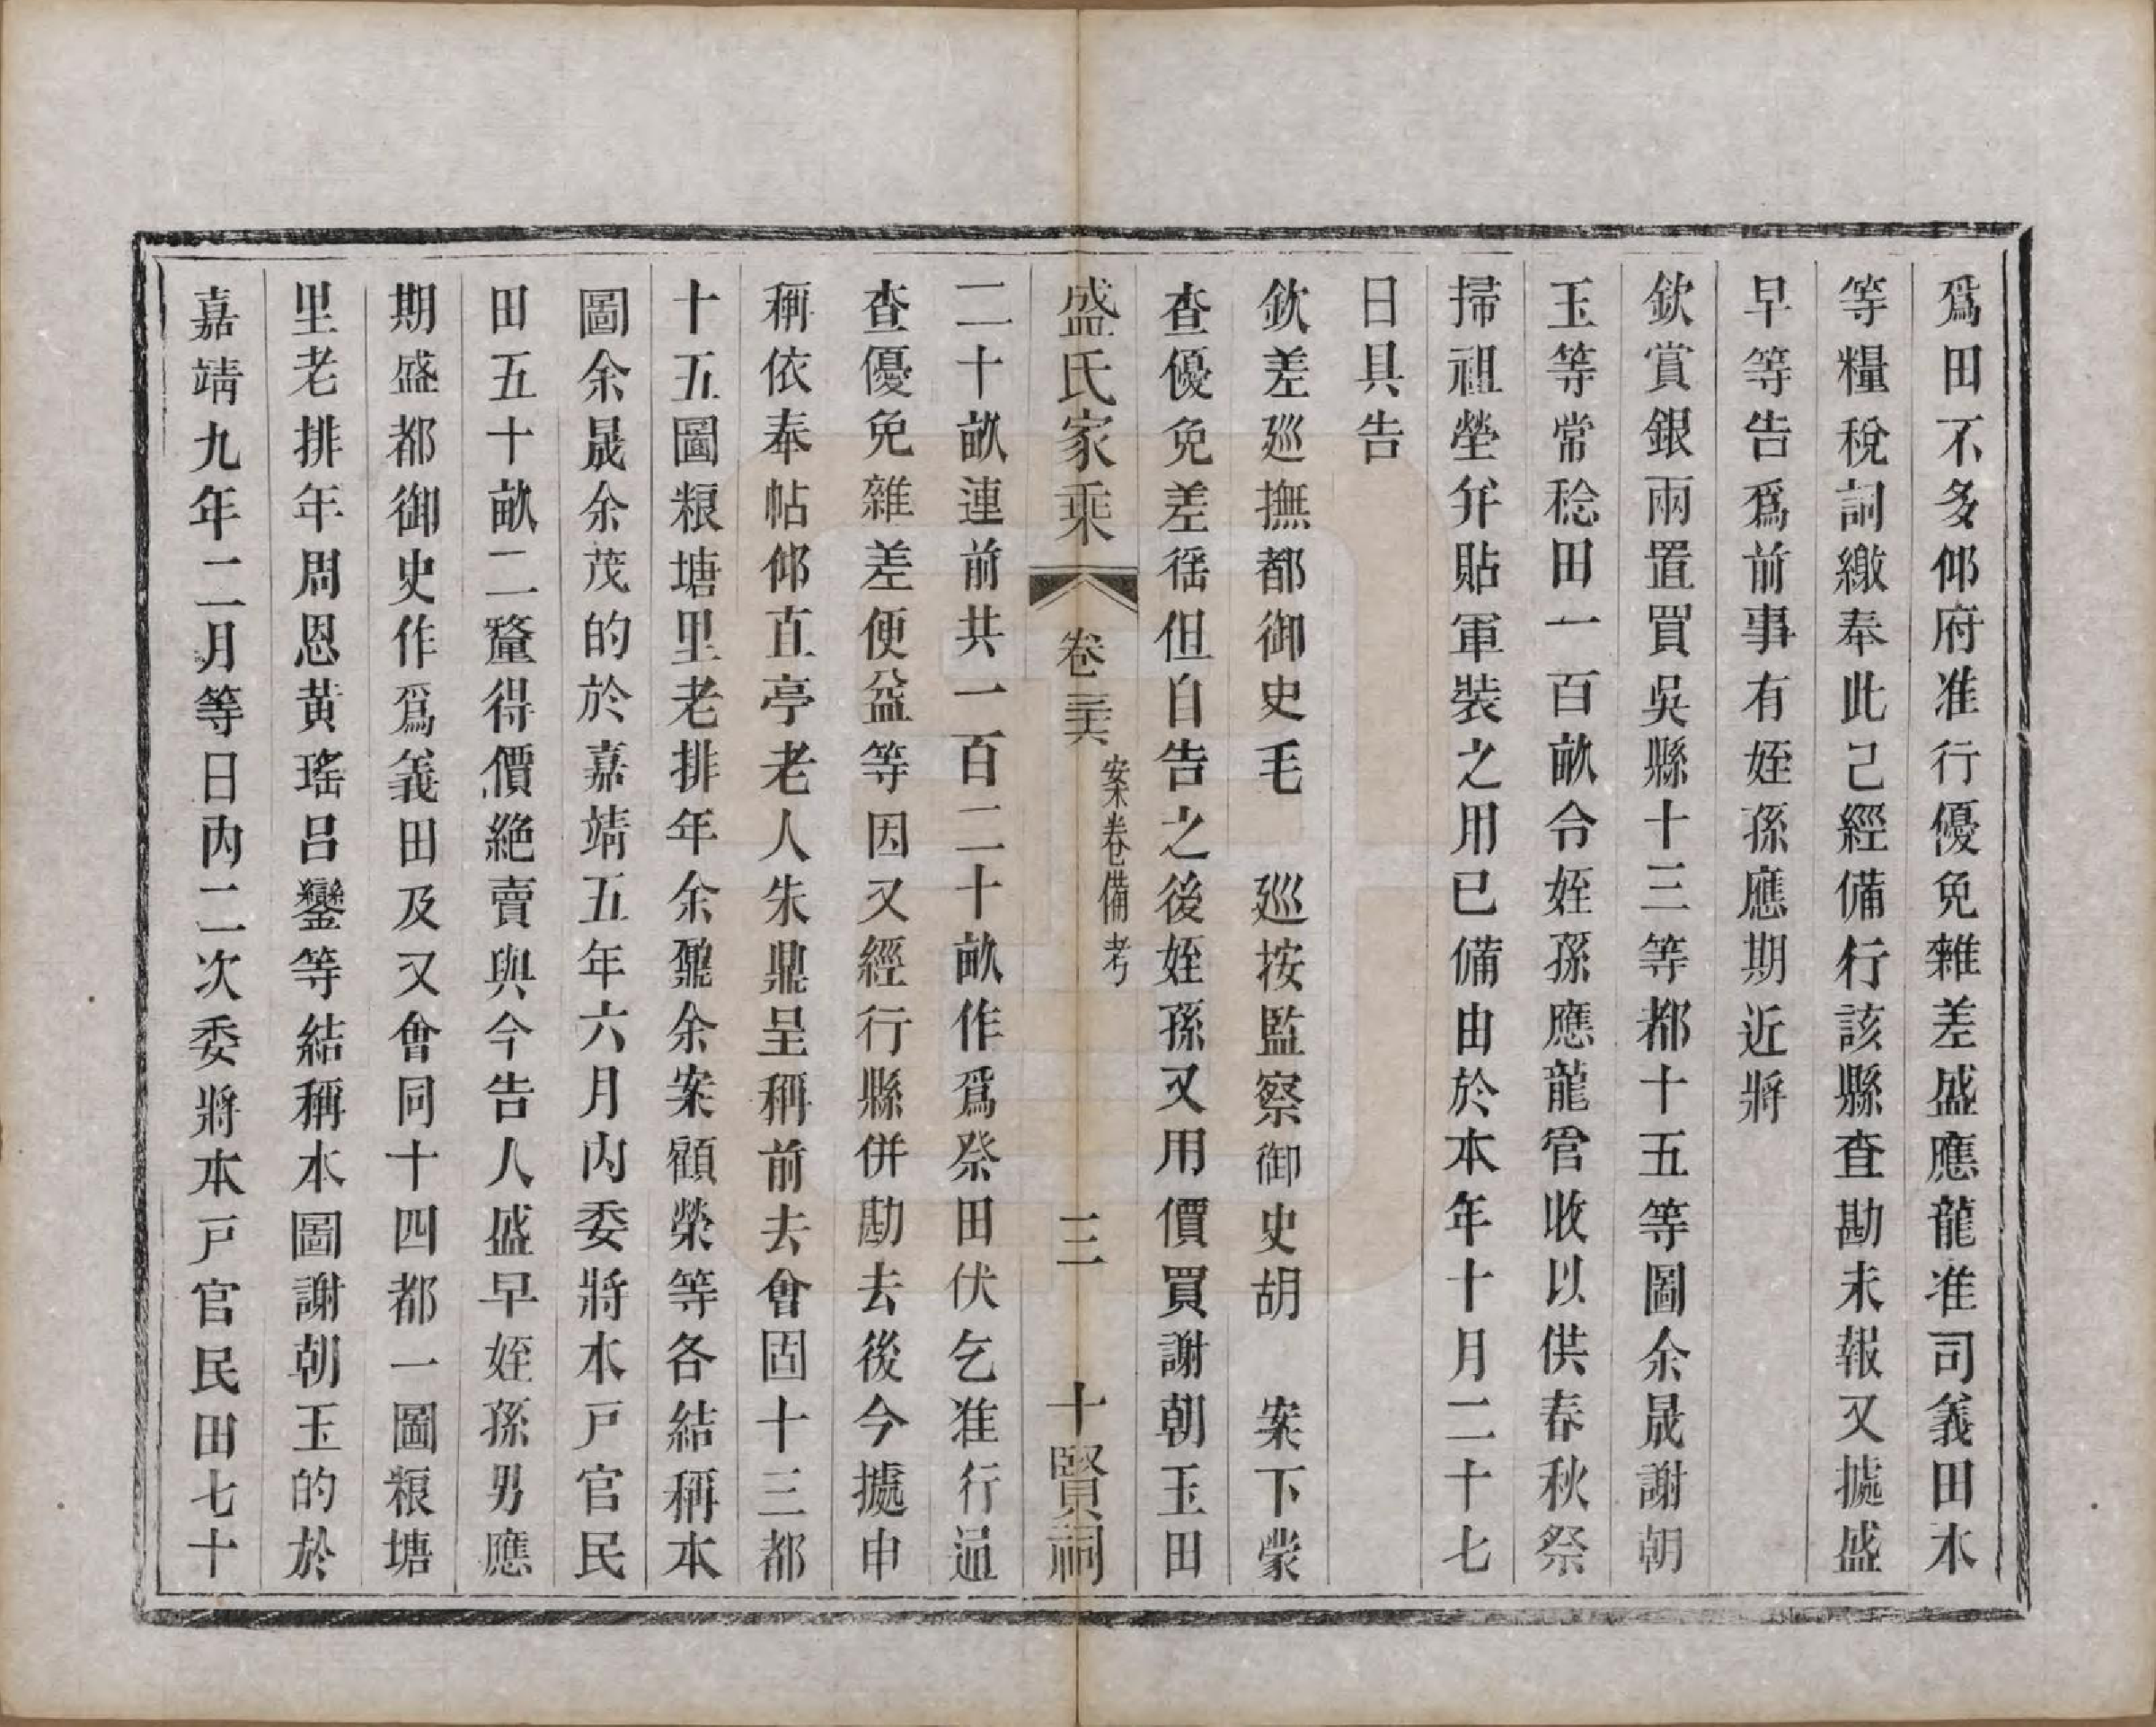 爲田不多仰府准行優免雜差盛應龍准司義田水
等糧稅詞繳奉此已經備行該縣查勘未報又據盛
早等告爲前事有姪孫應期近將
欽賞銀兩置買吳縣十三等都十五等圖余晟謝朝
玉等常稔田一百畝令姪孫應龍管收以供春秋祭
掃祖塋弁貼軍裝之用已備由於本年十月二十七
日具告
欽差廵撫都御史毛　廵按監察御史胡　案下蒙
查優免差徭但自告之後姪孫又用價買謝朝玉田
盛氏家乘　卷三六　案卷備考　三　十賢祠
二十畝連前共一百二十畝作爲祭田伏乞准行逼
查優免雜差便益等因又經行縣併勘去後今據申
稱依奉帖仰直亭老人朱鼎呈稱前去會固十三都
十五圖粮塘里老排年余鼐余案顧榮等各結稱本
圖余晟余茂的於嘉靖五年六月內委將本戸官民
田五十畝二釐得價絶賣與今告人盛早姪孫男應
期盛都御史作爲義田及又會同十四都一圖粮塘
里老排年周恩黃瑤呂鑾等結稱本圖謝朝玉的於
嘉靖九年二月等日內二次委將本戸官民田七十